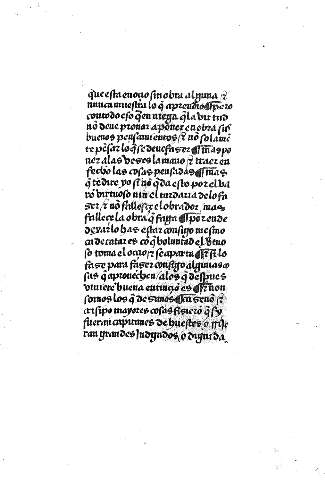 que esta en ocio sin obra alguna ⁊
nunca muestra lo q̃ aprendio ¶ pero
con todo eso q̃en niega q̃ la virtud
nõ deue prouar a poner en obra sus
buenos pensamientos ⁊ nõ solamẽ
te pẽsar lo q̃ se deue faser ¶ mas po
ner a las veses la mano ⁊ traer en
fecho las cosas pensadas ¶ mas
q̃ te dire yo si nõ q̃da esto por el va
rõ virtuoso nin el tardaria de lo fa
ser ⁊ nõ fallesçe el obrador mas
fallesçe la obra q̃ faga ¶ por ende
dexar lo has estar consigo mesmo
ca de catar es cõ q̃ voluntad el
so toma el ocio ⁊ se aparta ¶ lo
fase para faser consigo algunas co
sas q̃ aprouechen a los q̃ despues
viniere buena entinçiõ es ¶ non
somos los q̃ desimos ¶ senõ ⁊
crisipo mayores cosas fisierõ q̃ sy
fueran capitanes de huestes o
ran grandes judgados o dignida